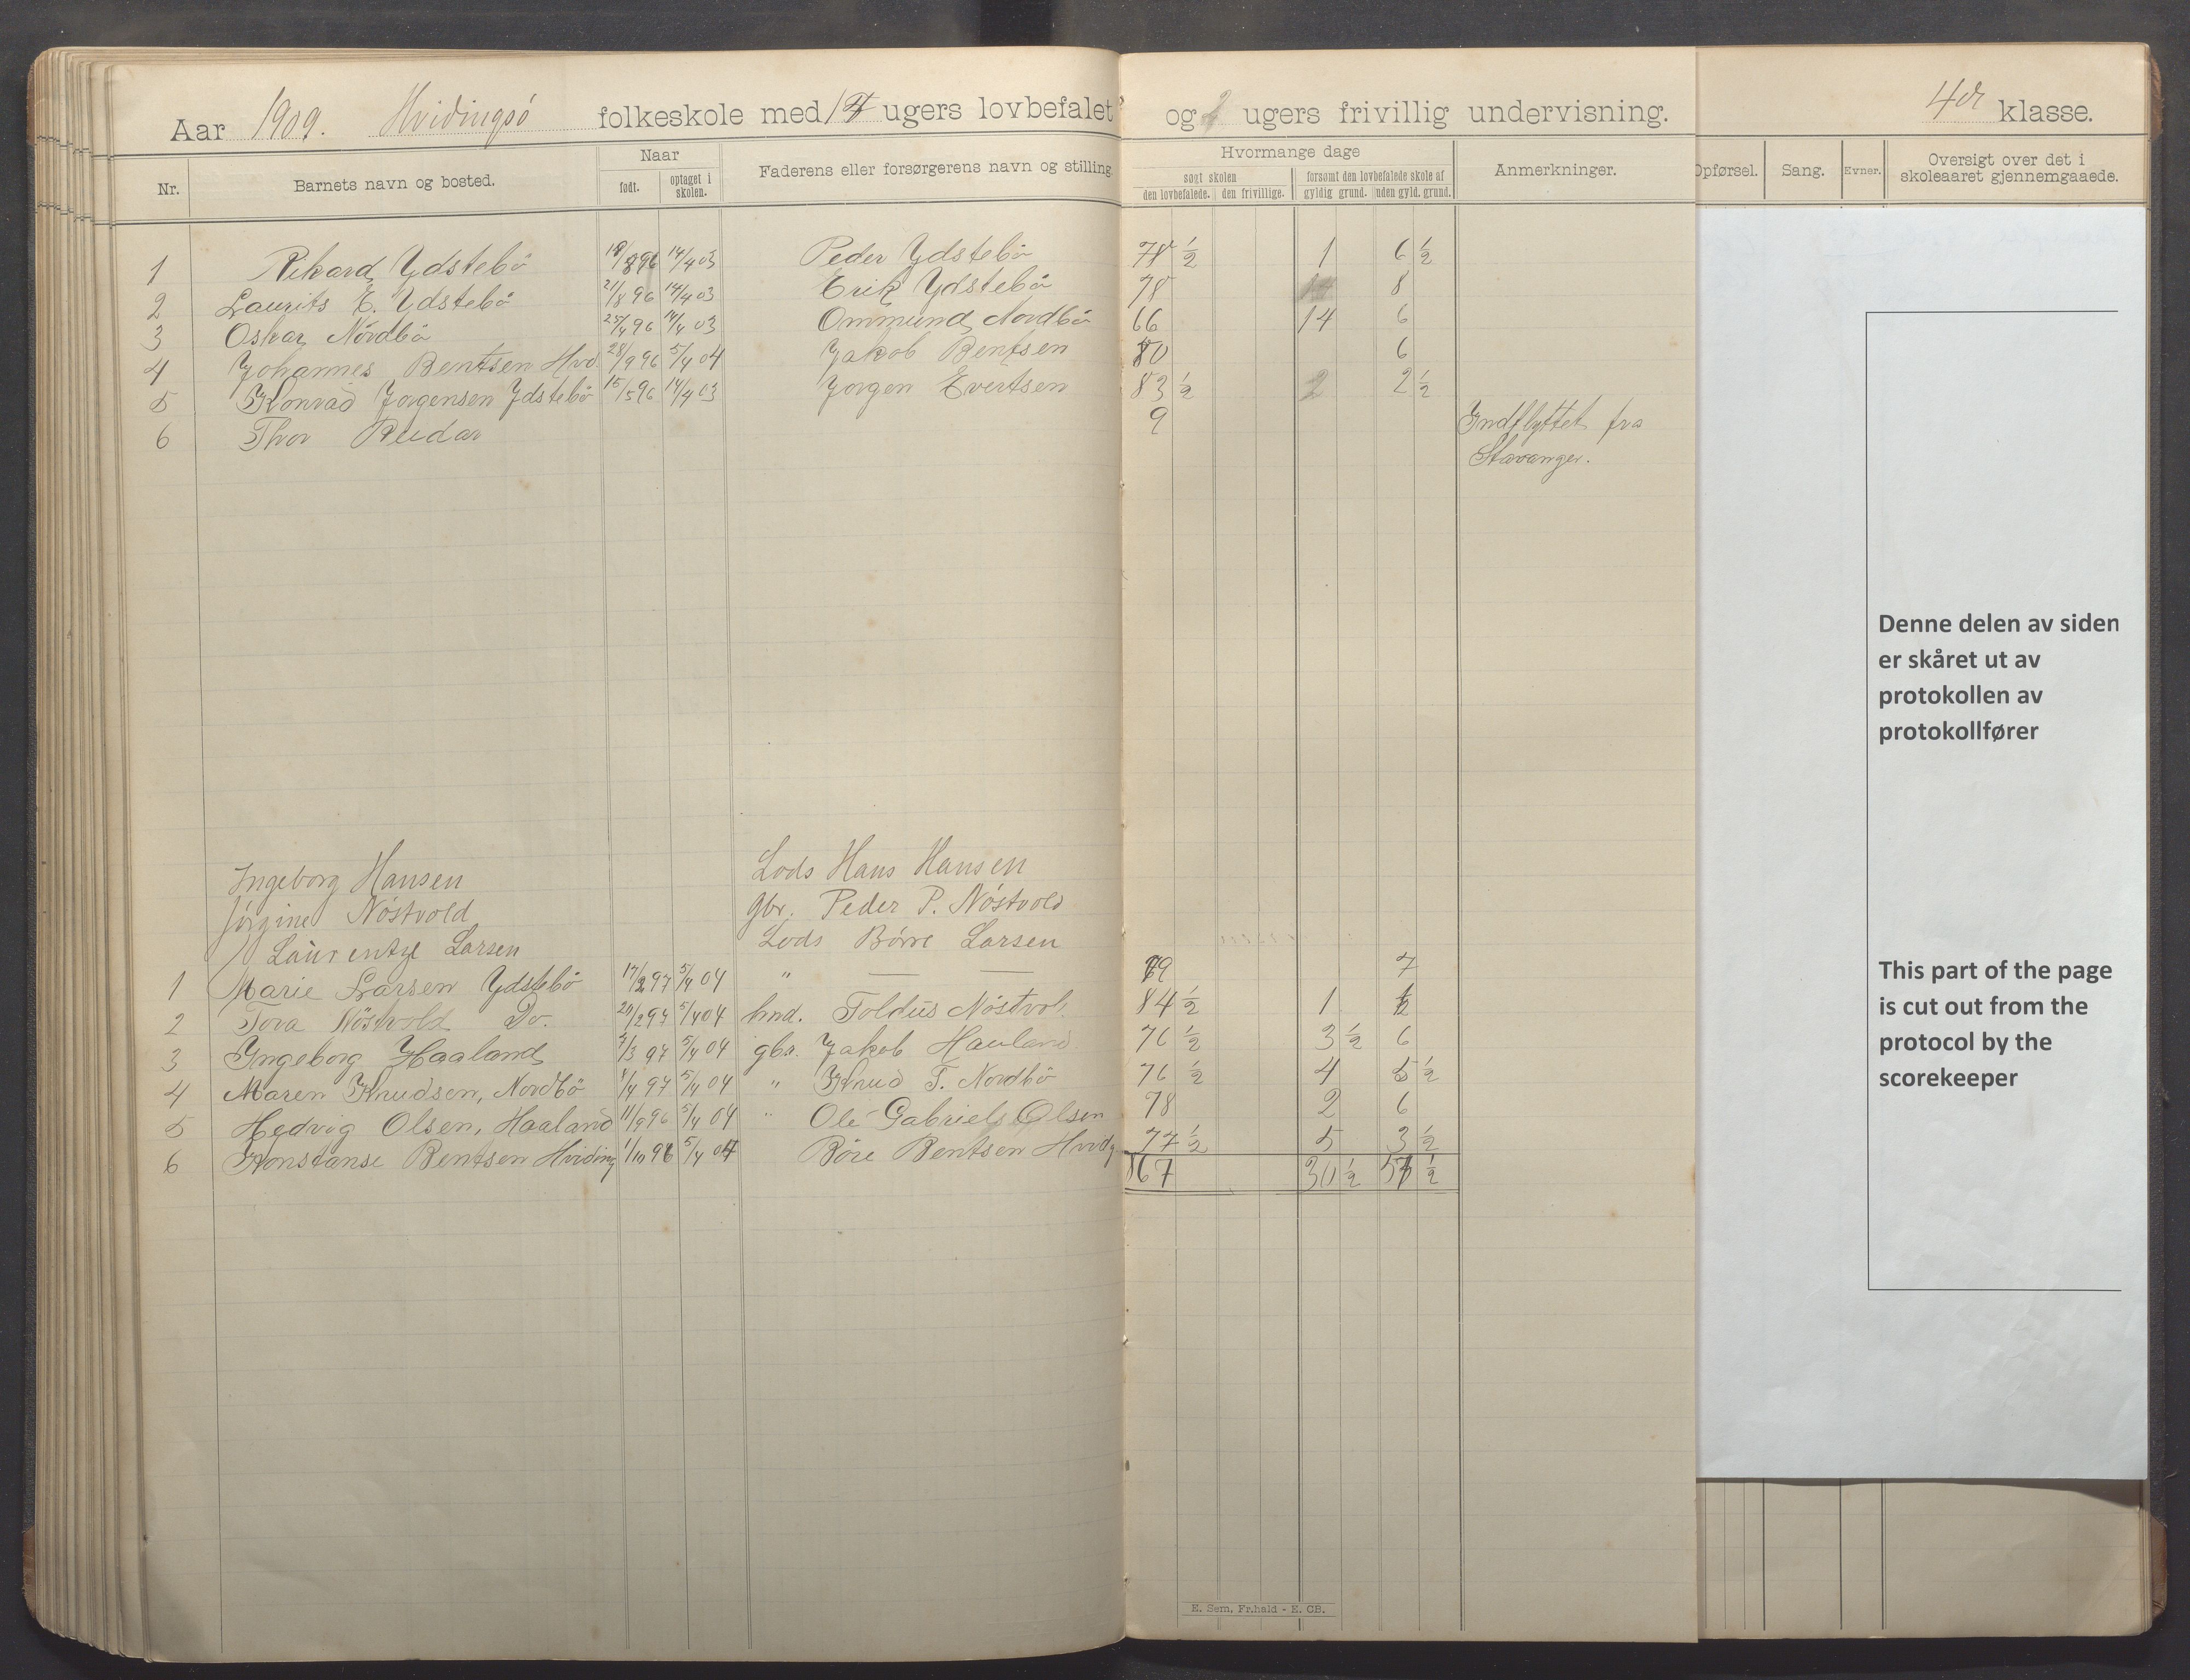 Aar 1909. Hvidingsö folkeskole med ugers lovbefalet og 2 ugers frivillig undervisning. 4de klasse.
Nr. Barnets navn og bosted. Naar født. optaget i skolen. Faderens eller forsørgerens navn og stilling. Hvormange dage søgt skolen den lovbefalede. den frivillige. forsømt den lovbefalede skole af gyldig grund. uden gyld. grund. Anmerkninger. Opførsel. Sang. Evner. Oversigt over det i skoleaaret gjennemgaaede.
1 Rikard Ydstebö 14/4 03 Peder Ydstebö 78 ½ 1 6 ½
2 Laurits E. Ydstebö 21/8 96 14/4 03 Erik Ydstebö 78 8
3 Oskar Nordbö 25/4 96 14/4 03 Ommund Nordbö 66 14 6
4 Johannes Bentsen Hvd. 28/9 96 5/4 04 Jakob Bentsen 80 6
5 Konrad Jørgensen Ydstebö 15/5 96 14/4 03 Jørgen Evertsen 83 ½ 2 2 ½
6 Thor Reidar 9 Indflyttet fra
Stavanger.
Ingeborg Hansen Lods Hans Hansen
Jörgine Nöstvold gbr. Peder P. Nöstvold
Laurentze Larsen Lods Börre Larsen
1 Marie Larsen Ydstebö 17/2 97 5/4 04 " — — 79 7
2 Tora Nöstvold Do. 20/2 97 5/4 04 hnd. Toldus Nöstvol. 84 ½ 1 ½
3 Ingeborg Haaland 7/3 97 5/4 04 gbr. Jakob Hauland 76 ½ 3 ½ 6
4 Maren Knudsen, Nordbö 1/4 97 5/4 04 " Knud T. Nordbö 76 ½ 4 5 ½
5 Hedvig Olsen, Haaland 11/9 96 5/4 04 " Ole Gabriels Olsen 78 2 6
6 Konstanse Bentsen Hviding 1/10 96 5/4 04 Böre Bentsen Hvidg 77 ½ 5 3 ½
867 30 ½ 57 ½
E. Sem, Fr.hald - E. CB.
Denne delen av siden
er skåret ut av
protokollen av
protokollfører
This part of the page
is cut out from the
protocol by the
scorekeeper